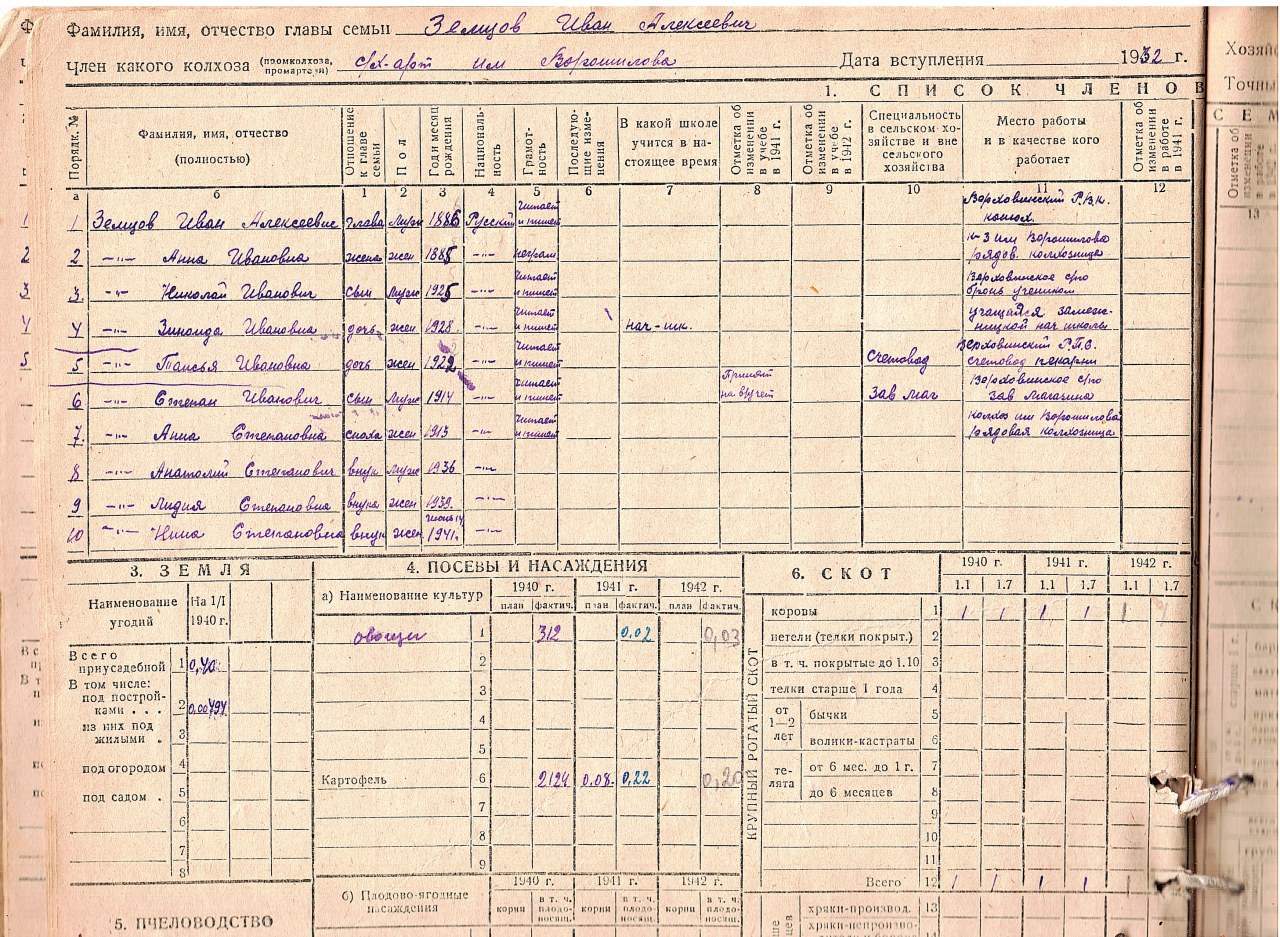 Фамилия, имя, отчество главы семьи Земцов Иван Алексеевич
Член какого колхоза (промколхоза, промартели) с/х-арт им Ворошилова Дата вступления 1932 г.
1. СПИСОК ЧЛЕНОВ
Хозяйс
Точны
СЕМ
Порядк. №
Фамилия, имя, отчество
(полностью)
Отношение к главе семьи
Пол
Год и месяц рождения
Националь-ность
Грамот-ность
Последую-щие изме-нения
В какой школе учится в на-стоящее время
Отметка об изменении в учебе в 1941 г.
Отметка об изменении в учебе в 1942 г.
Специальность в сельском хо-зяйстве и вне сельского хозяйства
Место работы и в качестве кого работает
Отметка об изменении в работе в 1941 г.
Отметка об
а б 1 2 3 4 5 6 7 8 9 10 11 12 13
1 1 Земцов Иван Алексеевич глава муж 1886 Русский читает и пишет Верховинский Р.В.К. конюх.
2 2 —„— Анна Ивановна жена жен 1885 —„— неграм к-з им Ворошилова рядов. колхозница
3 3. —„— Николай Иванович сын муж 1925 —„— читает и пишет Верховинское с/по учеником
4 4 —„— Зинаида Ивановна дочь жен 1928. —„— читает и пишет нач-шк. учащаяся нач школы
5 5 —„— Таисья Ивановна дочь жен 1922 —„— читает и пишет Счетовод Верховинский счетовод пекарни
6 —„— Степан Иванович сын муж 1914 —„— читает и пишет Принят на в/учет Зав маг Верховинское с/по Зав магазина
7. —„— Анна Степановна сноха жен 1913 —„— читает и пишет колхоз им Ворошилова рядовая колхозница
8 —„— Анатолий Степанович внук муж 1936 —„—
9 —„— Лидия Степановна внука жен 1939. —„—
10 —„— Нина Степановна внук жен июнь 14 1941. —„—
3. ЗЕМЛЯ
Наименование угодий
На 1/I 1940 г.
Всего приусадебной 1 0,40
В том числе:
под построй-ками . . . 2 0.00494
из них под жилыми . 3
под огородом 4
под садом . 5
6
7
8
5. ПЧЕЛОВОДСТВО
4. ПОСЕВЫ И НАСАЖДЕНИЯ
а) Наименование культур
1940 г. 1941 г. 1942 г.
план фактич. план фактич. план фактич.
овощи 1 312 0,02 0,03
2
3
4
5
Картофель 6 2124 0.08. 0,22 0,20
7
8
9
б) Плодово-ягодные насаждения
1940 г. 1941 г. 1942 г.
корни в т. ч. плодо-носящ. корни в т. ч. плодо-носящ. корни в т. ч. плодо-носящ.
6. СКОТ
1940 г. 1941 г. 1942 г.
1.1 1.7 1.1 1.7 1.1 1.7
КРУПНЫЙ РОГАТЫЙ СКОТ
коровы 1 1 1 1 1 1 1
нетели (телки покрыт.) 2
в т. ч. покрытые до 1.10 3
телки старше 1 года 4
от 1—2 лет
бычки 5
волики-кастраты 6
те-лята
от 6 мес. до 1 г. 7
до 6 месяцев 8
9
10
11
Всего 12 1 1 1 1 1
хряки-производ. 13
хряки-непроизво-